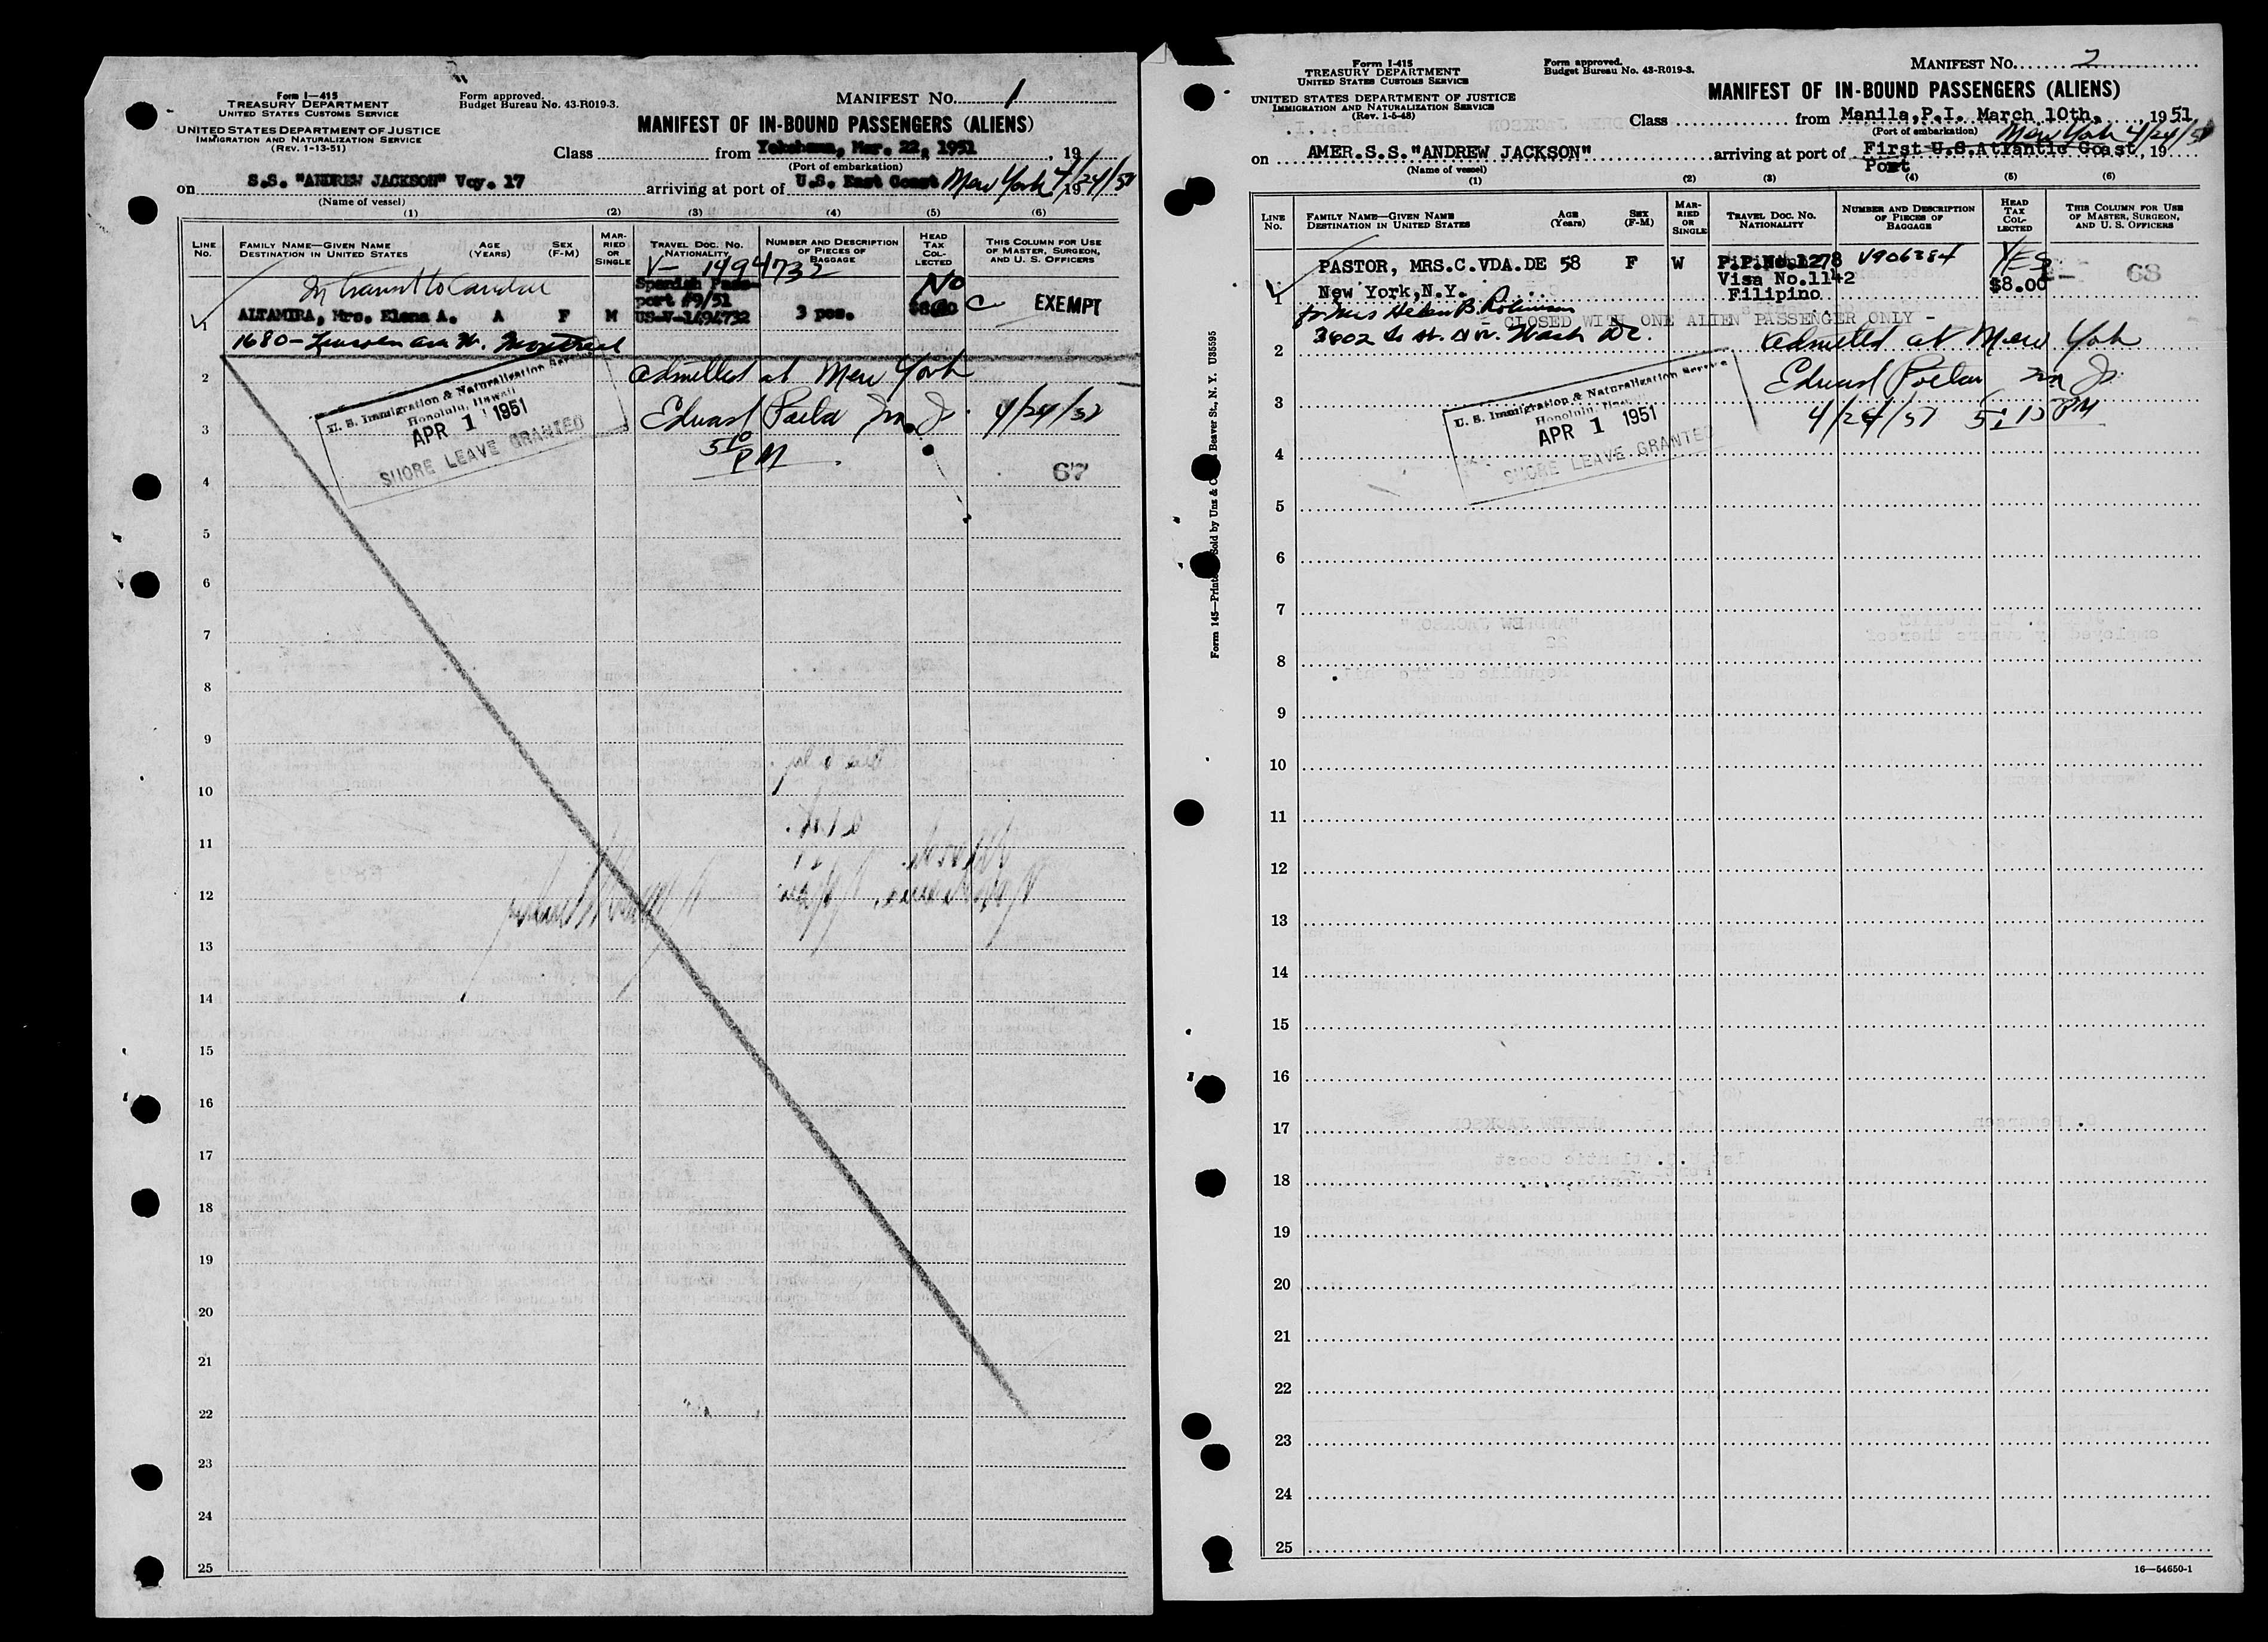 Form I—415
TREASURY DEPARTMENT
UNITED STATES CUSTOMS SERVICE
UNITED STATES DEPARTMENT OF JUSTICE
IMMIGRATION AND NATURALIZATION SERVICE
(REV. 1-13-51)
Form approved.
Budget Bureau No. 43-R019-3.
MANIFEST NO. 1
MANIFEST OF IN-BOUND PASSENGERS (ALIENS)
Class from Yokohama, Mar. 22, 1951, 19
(Port of embarkation)
on S.S. "ANDREW JACKSON" Voy. 17 arriving at port of U.S. East Coast New York 4/24/51 19
(Name of vessel)
(1) (2) (3) (4) (5) (6)
LINE NO.
FAMILY NAME—GIVEN NAME
DESTINATION IN UNITED STATES
AGE (YEARS)
SEX (F-M)
MARRIED OR SINGLE
TRAVEL DOC. NO. NATIONALITY
NUMBER AND DESCRIPTION OF PIECES OF BAGGAGE
HEAD TAX COLLECTED
THIS COLUMN FOR USE OF MASTER, SURGEON, AND U. S. OFFICERS
V- 1494732
In transit to Canada
Spanish Pass-
port #9/51
No
1 ALTAMIRA, Mrs. Elena A. A F M US-V-1494732 3 pcs. $8.00 C EXEMPT
1680-Lincoln Ave W. Montreal
2 Admitted at New York
U. S. Immigration & Naturalization Service
Honolulu, Hawaii
APR 1 1951
SHORE LEAVE GRANTED
3 Edward 4/24/51
5 10 PM
4 67
5
6
7
8
9
10
11
12
13
14
15
16
17
18
19
20
21
22
23
24
25
Form I-415
TREASURY DEPARTMENT
UNITED STATES CUSTOMS SERVICE
UNITED STATES DEPARTMENT OF JUSTICE
IMMIGRATION AND NATURALIZATION SERVICE
(Rev. 1-5-48)
Form approved.
Budget Bureau No. 43-R019-3.
MANIFEST NO. 2
MANIFEST OF IN-BOUND PASSENGERS (ALIENS)
Class from Manila,P.I. March 10th, 1951
(Port of embarkation) New York 4/24/51
on AMER.S.S."ANDREW JACKSON" arriving at port of First U.S.Atlantic Coast, 19
Port
(Name of vessel)
(1) (2) (3) (4) (5) (6)
LINE No.
FAMILY NAME—GIVEN NAME
DESTINATION IN UNITED STATES
AGE (Years)
SEX (F-M)
MARRIED OR SINGLE
TRAVEL DOC. NO. NATIONALITY
NUMBER AND DESCRIPTION OF PIECES OF BAGGAGE
HEAD TAX COLLECTED
THIS COLUMN FOR USE OF MASTER, SURGEON, AND U. S. OFFICERS
PASTOR, MRS.C.VDA.DE 58 F W P.P.No.1278 V906284 YES 68
1 New York,N.Y. Visa No.1142 $8.00
Filipino
Mrs Helen B. Robinson
- CLOSED WITH ONE ALIEN PASSENGER ONLY -
3802 St. N.W. Wash DC.
2 Admitted at New York
U. S. Immigration & Naturalization Service
Honolulu, Hawaii
APR 1 1951
SHORE LEAVE GRANTED
3 Edward
4/24/51 5:15 PM
4
5
6
7
8
9
10
11
12
13
14
15
16
17
18
19
20
21
22
23
24
25
16—54650-1